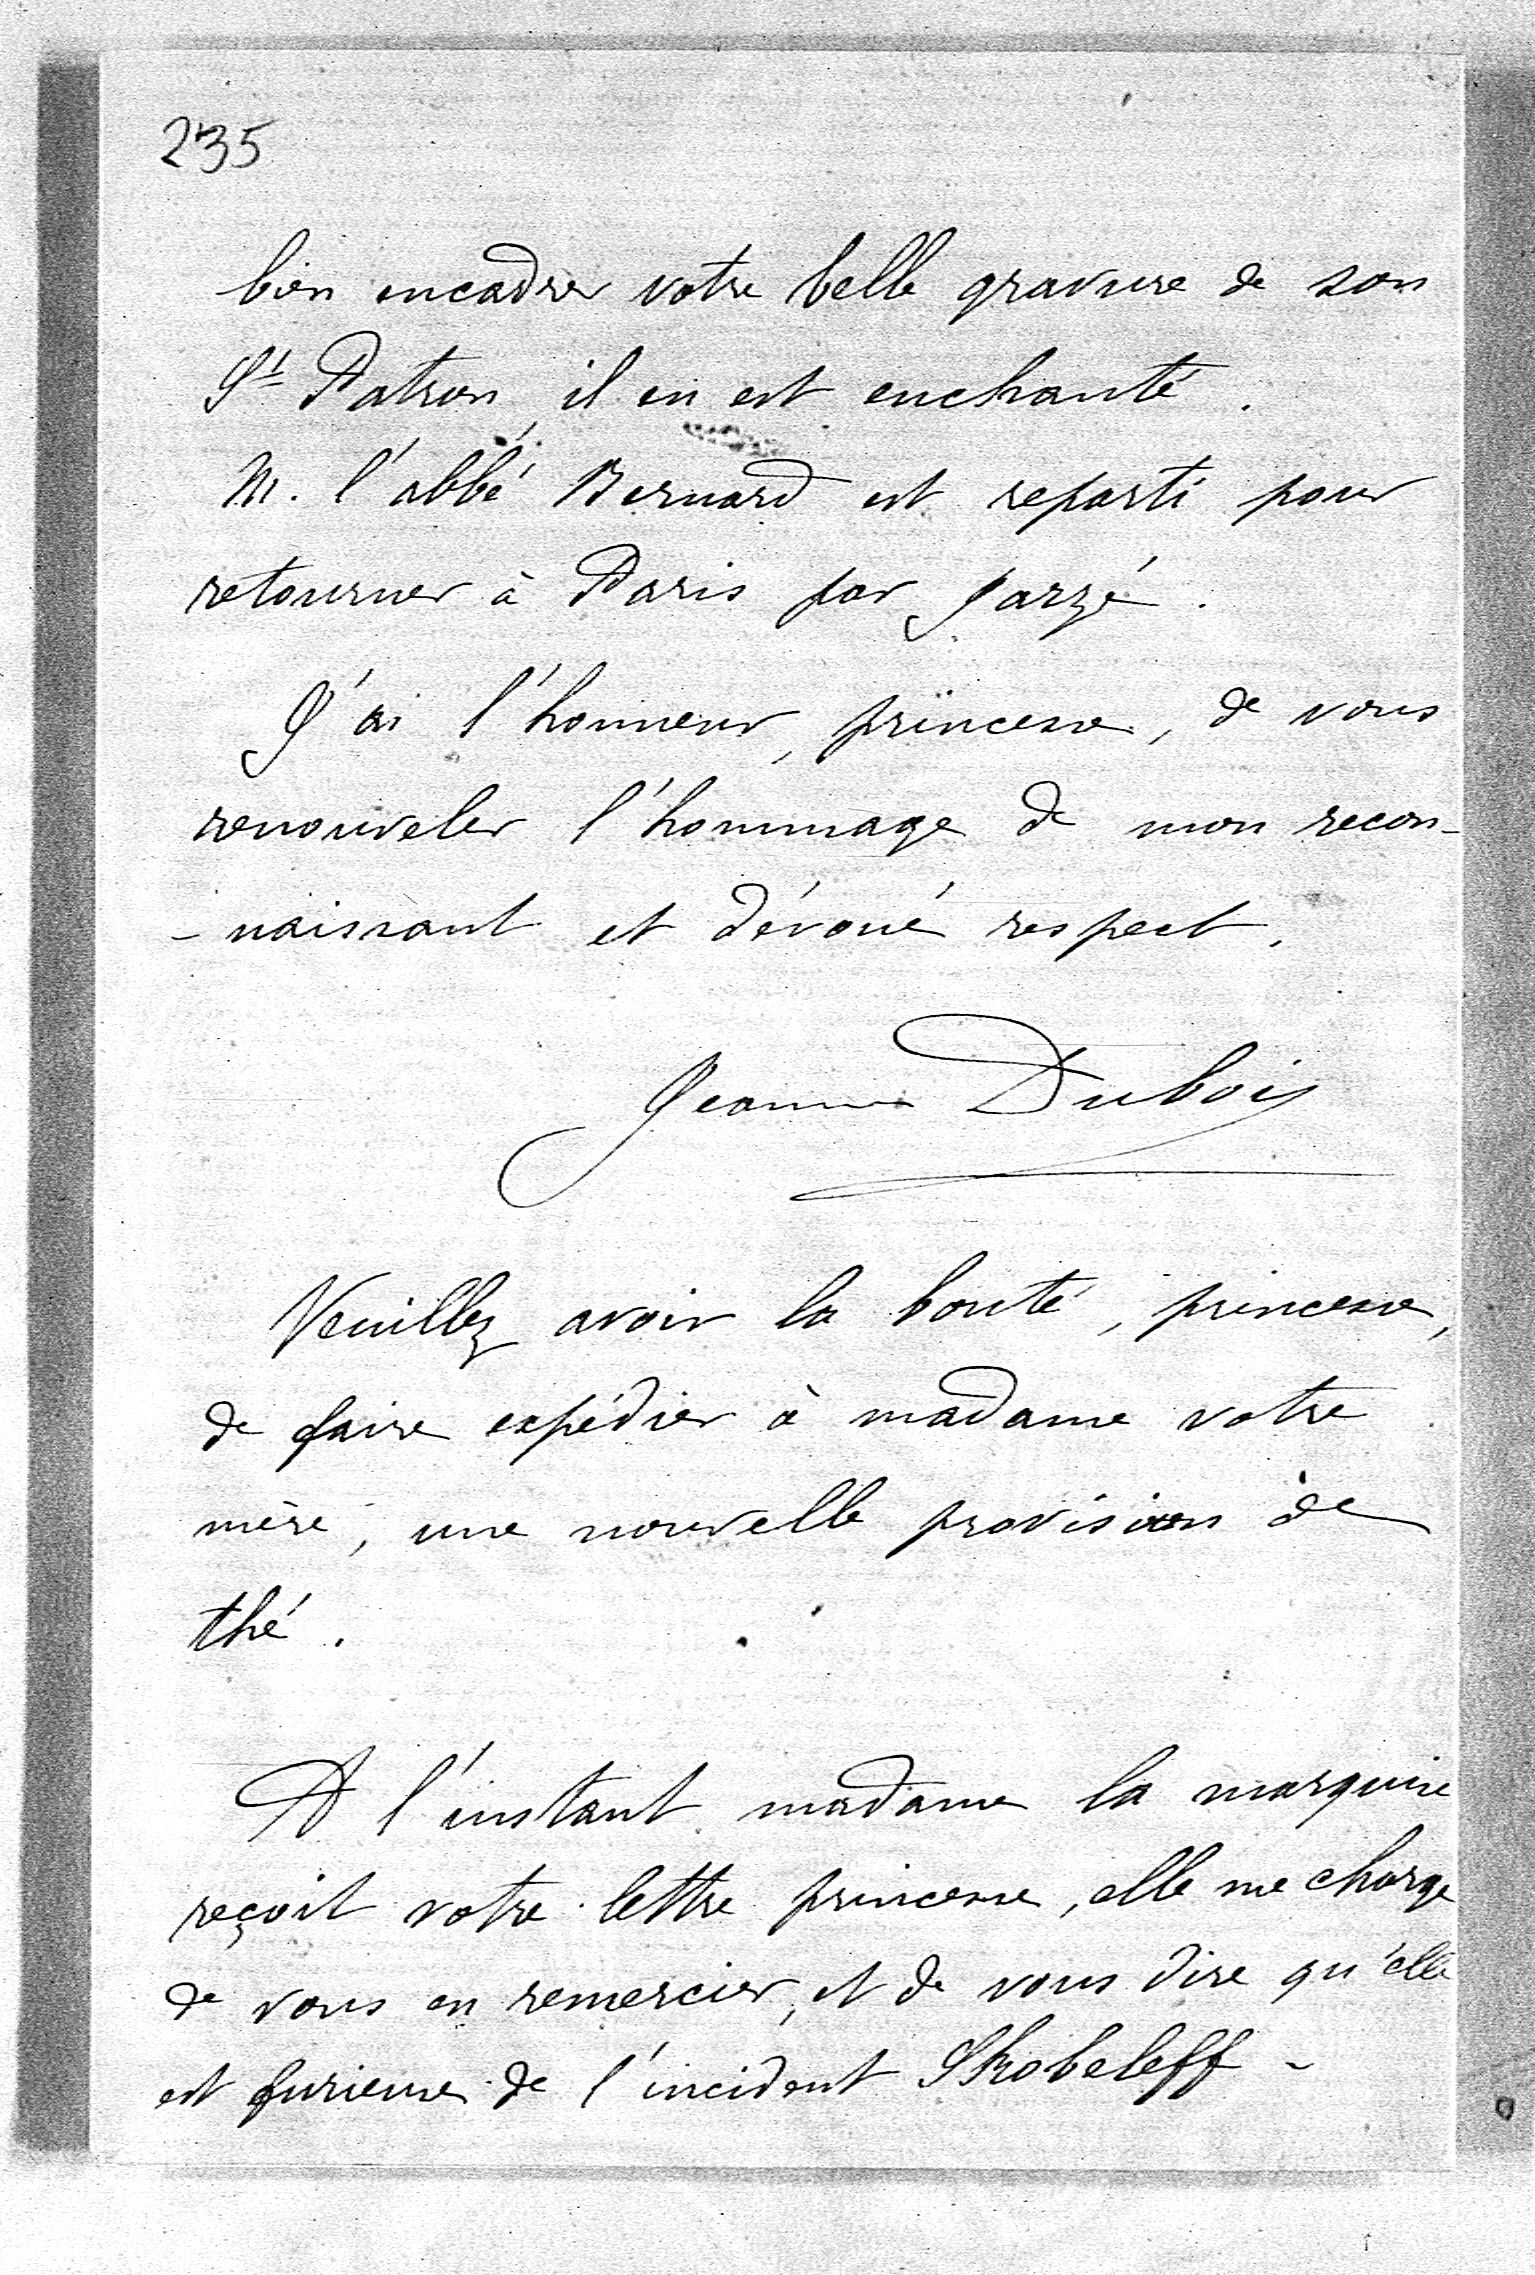 235
bien encadrer votre belle gravure de son
St Patron, il en est enchanté.
M. l'abbé Bernard est reparti pour
retourner à Paris par Jarzé.
J'ai l'honneur, princesse, de vous
renouveler l'hommage de mon recon-
- naissant et dévoué respect.
Jeanne Dubois
Veuillez avoir la bonté, princesse,
de faire expédier à madame votre
mère, une nouvelle provision de
thé.
A l'instant madame la marquise
reçoit votre lettre princesse, elle me charge
de vous en remercier, et de vous dire qu'elle
est furieuse de l'incident Skobeleff -